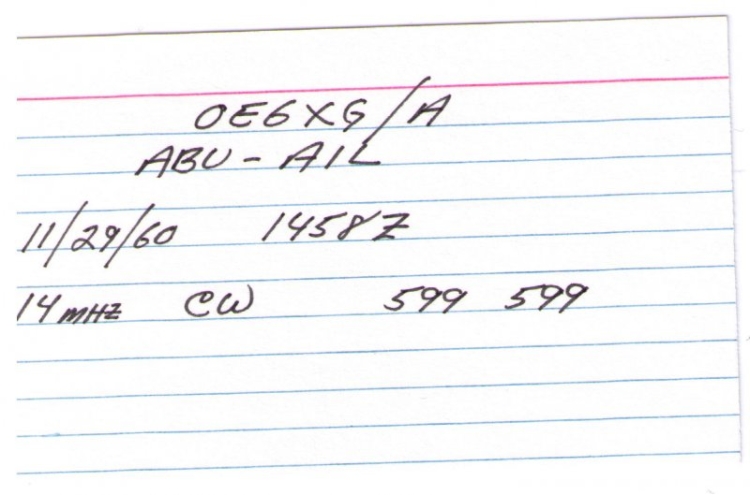 OE6XG/A
ABU - AIL
11/29/60 1458Z
14 mHZ CW 599 599